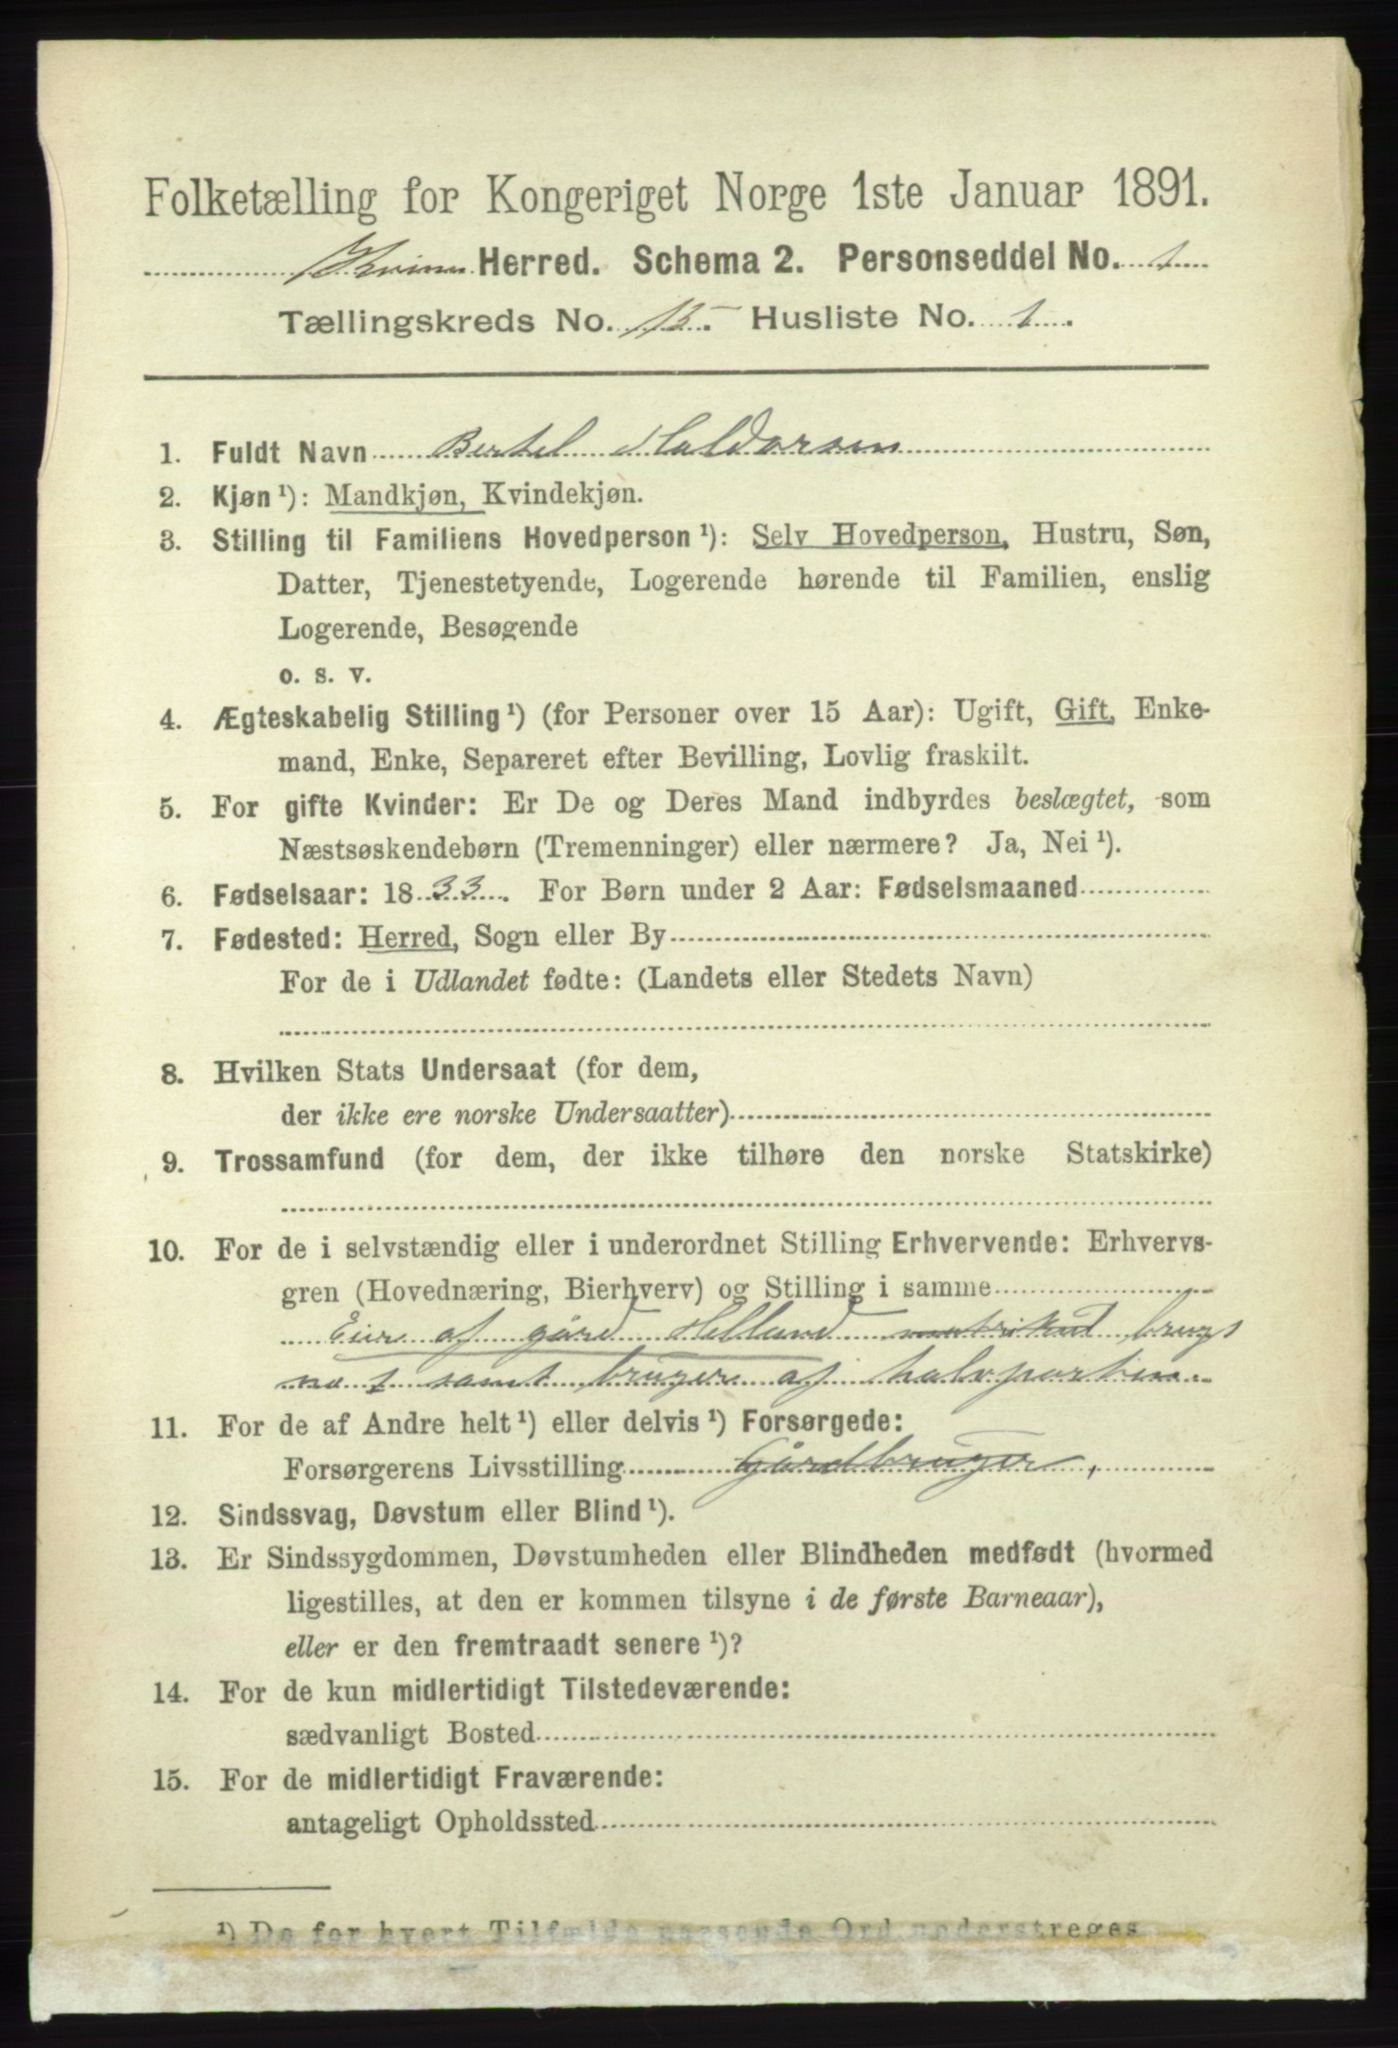 Folketælling for Kongeriget Norge 1ste Januar 1891.
Kvinn Herred. Schema 2. Personseddel No. 1
Tællingskreds No. 13. Husliste No. 1.
1. Fuldt Navn Bertel Haldorsen
2. Kjøn ¹): Mandkjøn, Kvindekjøn.
3. Stilling til Familiens Hovedperson ¹): Selv Hovedperson, Hustru, Søn,
Datter, Tjenestetyende, Logerende hørende til Familien, enslig
Logerende, Besøgende
o. s. v.
4. Ægteskabelig Stilling ¹) (for Personer over 15 Aar): Ugift, Gift, Enke-
mand, Enke, Separeret efter Bevilling, Lovlig fraskilt.
5. For gifte Kvinder: Er De og Deres Mand indbyrdes beslægtet, som
Næstsøskendebørn (Tremenninger) eller nærmere? Ja, Nei ¹).
6. Fødselsaar: 1833. For Børn under 2 Aar: Fødselsmaaned
7. Fødested: Herred, Sogn eller By
For de i Udlandet fødte: (Landets eller Stedets Navn)
8. Hvilken Stats Undersaat (for dem,
der ikke ere norske Undersaatter)
9. Trossamfund (for dem, der ikke tilhøre den norske Statskirke)
10. For de i selvstændig eller i underordnet Stilling Erhvervende: Erhvervs-
gren (Hovednæring, Bierhverv) og Stilling i samme
Eier af gård Helland matrikul brugs
no 1 samt bruger af halvparten.
11. For de af Andre helt ¹) eller delvis ¹) Forsørgede:
Forsørgerens Livsstilling Gårdbruger,
12. Sindssvag, Døvstum eller Blind ¹).
13. Er Sindssygdommen, Døvstumheden eller Blindheden medfødt (hvormed
ligestilles, at den er kommen tilsyne i de første Barneaar),
eller er den fremtraadt senere ¹)?
14. For de kun midlertidigt Tilstedeværende:
sædvanligt Bosted
15. For de midlertidigt Fraværende:
antageligt Opholdssted
¹) De for hvert Tilfælde passende Ord understreges